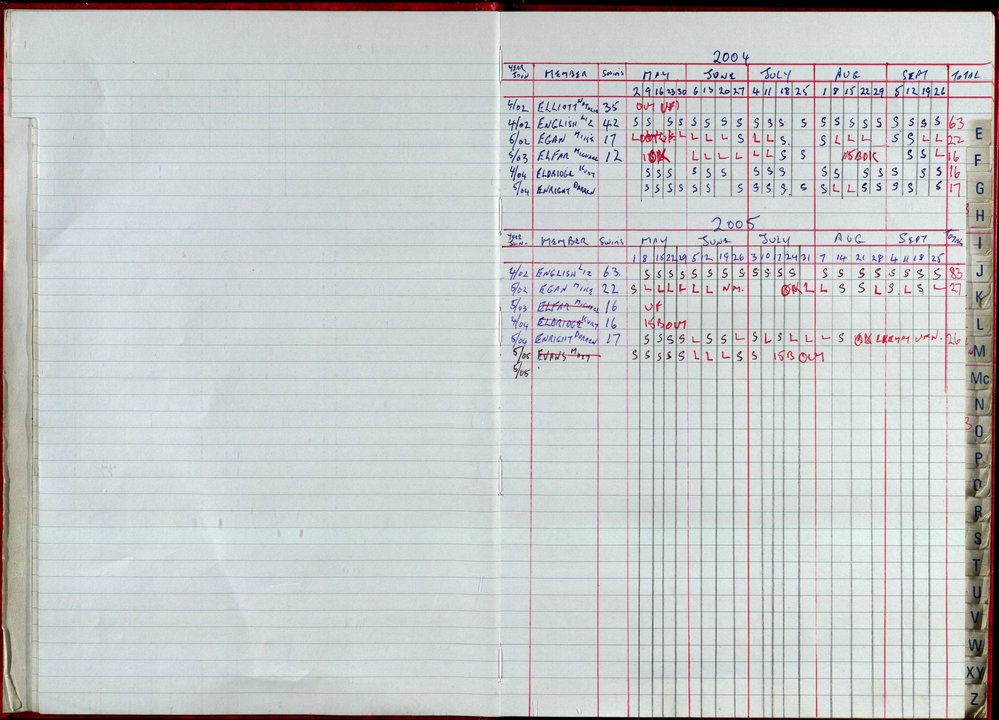 2004
YEAR JOIN MEMBER SWIMS MAY JUNE JULY AUG SEPT TOTAL
2 9 16 23 30 6 13 20 27 4 11 18 25 1 8 15 22 29 5 12 19 26
4/02 ELLIOTT 35 OUT UF
4/02 ENGLISH LIZ 42 S S S S S S S S S S S S S S S S S S S S S 63
5/02 EGAN MIKE 17 L L L L L L S L L S S L L L S S L L 22
5/03 ELFAR MICHAEL 12 L L L L L L S S 15 BOK S S L 16
4/04 ELDRIDGE KURT S S S S S S S S S S S S S S S S 16
5/04 ENRIGHT DARREN S S S S S S S S S S S S L L S S S S S 17
2005
YEAR JOIN. MEMBER SWIMS MAY JUNE JULY AUG SEPT TOTAL
1 8 15 22 29 5 12 19 26 3 10 17 24 31 7 14 21 28 4 11 18 25
4/02 ENGLISH LIZ 63 S S S S S S S S S S S S S S S S S S S S 83
5/02 EGAN MIKE 22 S L L L L L L N.M. OK L L S S L S L S L 27
5/03 ELFAR MICHAEL 16 UF
4/04 ELDRIDGE KURT 16 15 B OUT
5/04 ENRIGHT DARREN 17 S S S S L S S L S L S L L L S OK 26
5/05 EVANS S S S S S L L L S S 15 B OUT
5/05
E
F
G
H
I
J
K
L
M
Mc
N
O
P
Q
R
S
T
U
V
W
XY
Z